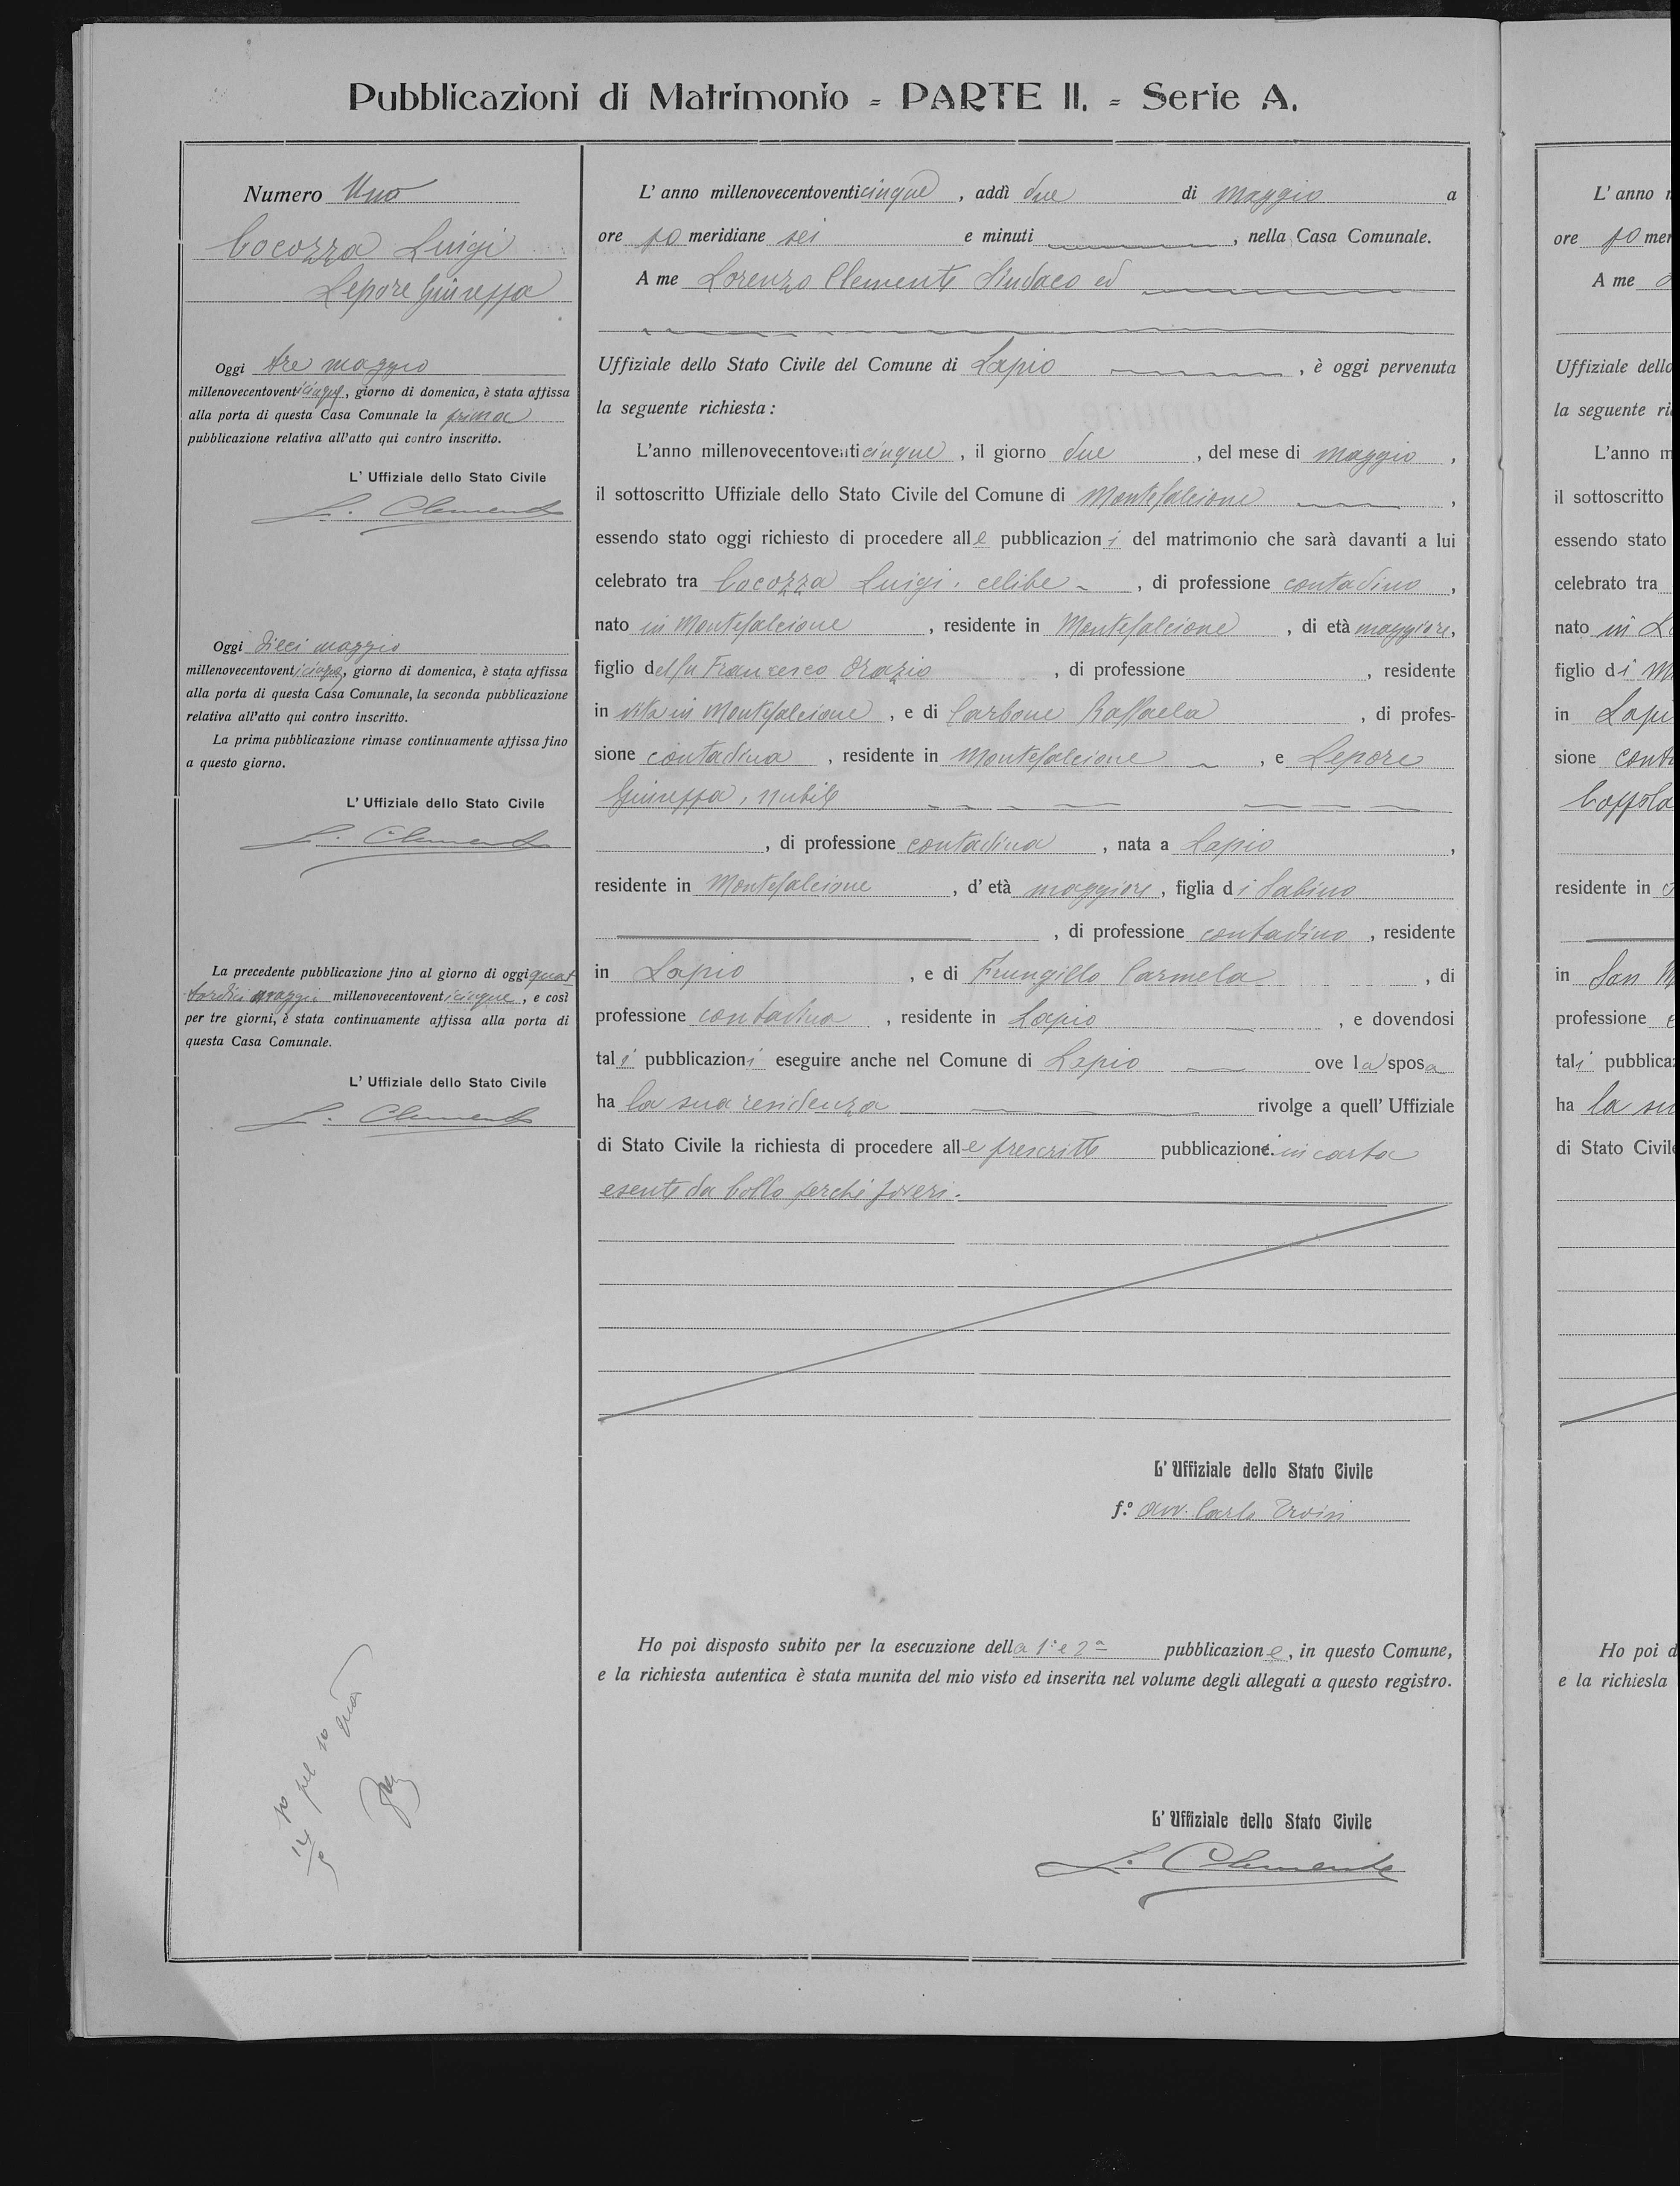 Pubblicazioni di Matrimonio = PARTE II. = Serie A.
Numero Uno
Cocozza Luigi
Lepore Giuseppa
Oggi tre maggio
millenovecentoventicinque, giorno di domenica, è stata affissa
alla porta di questa Casa Comunale la prima
pubblicazione relativa all'atto qui contro inscritto.
L' Uffiziale dello Stato Civile
L. Clemente
Oggi dieci maggio
millenovecentoventicinque, giorno di domenica, è stata affissa
alla porta di questa Casa Comunale, la seconda pubblicazione
relativa all'atto qui contro inscritto.
La prima pubblicazione rimase continuamente affissa fino
a questo giorno.
L' Uffiziale dello Stato Civile
L. Clemente
La precedente pubblicazione fino al giorno di oggi quat
tordici maggio millenovecentoventicinque, e così
per tre giorni, è stata continuamente affissa alla porta di
questa Casa Comunale.
L' Uffiziale dello Stato Civile
L. Clemente
L' anno millenovecentoventicinque, addì due di maggio a
ore po meridiane sei e minuti , nella Casa Comunale.
A me Lorenzo Clemente Sindaco ed
Uffiziale dello Stato Civile del Comune di Lapio , è oggi pervenuta
la seguente richiesta:
L'anno millenovecentoventicinque, il giorno due , del mese di maggio ,
il sottoscritto Uffiziale dello Stato Civile del Comune di Montefalcione ,
essendo stato oggi richiesto di procedere alle pubblicazioni del matrimonio che sarà davanti a lui
celebrato tra Cocozza Luigi, celibe , di professione contadino ,
nato in Montefalcione , residente in Montefalcione , di età maggiore,
figlio del fu Francesco Orazio , di professione , residente
in vita in Montefalcione , e di Carbone Raffaela , di profes-
sione contadina , residente in Montefalcione , e Lepore
Giuseppa, nubile
, di professione contadina , nata a Lapio ,
residente in Montefalcione , d' età maggiore, figlia di Sabino
, di professione contadino , residente
in Lapio , e di Frungillo Carmela , di
professione contadina , residente in Lapio , e dovendosi
tali pubblicazioni eseguire anche nel Comune di Lapio ove la sposa
ha la sua residenza rivolge a quell' Uffiziale
di Stato Civile la richiesta di procedere alle prescritte pubblicazioni. in carta
esente da bollo perchè poveri.
L' Uffiziale dello Stato Civile
f.º avv. Carlo Troisi
Ho poi disposto subito per la esecuzione della 1ª e 2ª pubblicazione, in questo Comune,
e la richiesta autentica è stata munita del mio visto ed inserita nel volume degli allegati a questo registro.
L' Uffiziale dello Stato Civile
L. Clemente
L' anno
ore po mer
A me
Uffiziale dello
la seguente ri
L'anno m
il sottoscritto
essendo stato
celebrato tra
nato in L
figlio di M
in Lapi
sione cont
Coppola
residente in
in San M
professione
tali pubblica
ha la su
di Stato Civile
Ho poi d
e la richiesta